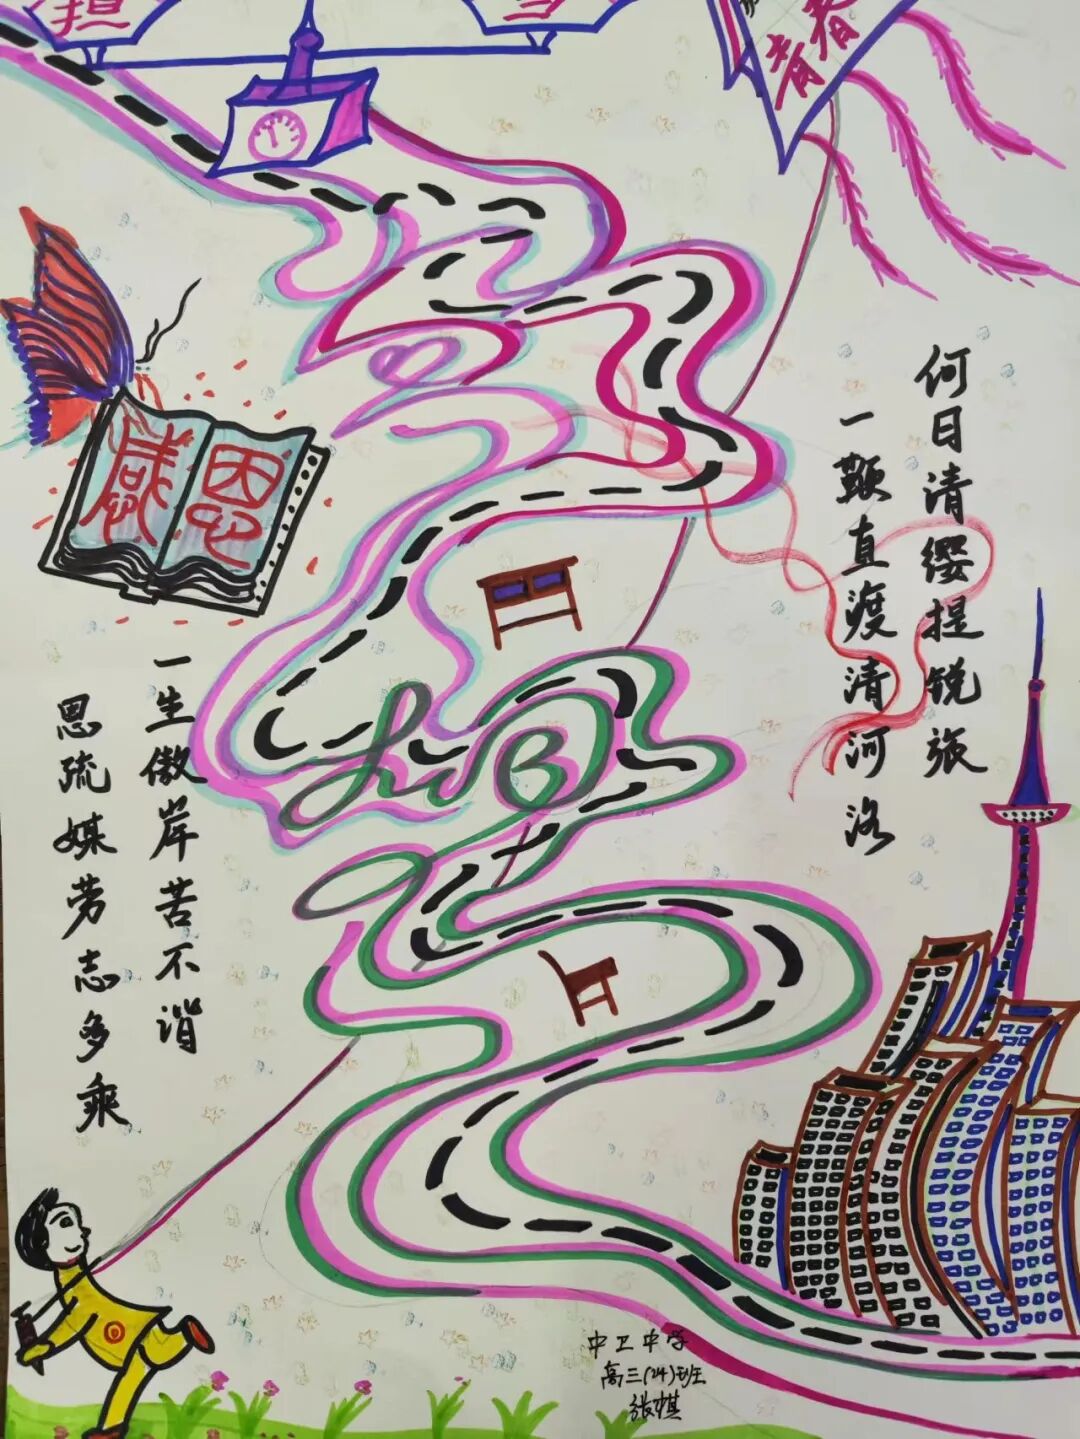 担 当
青春
感恩
何日清缨提锐旅
一颗直渡清河洛
一生傲岸苦不谐
恩疏媒劳志多乖
中卫中学
高三(24)班
张祺